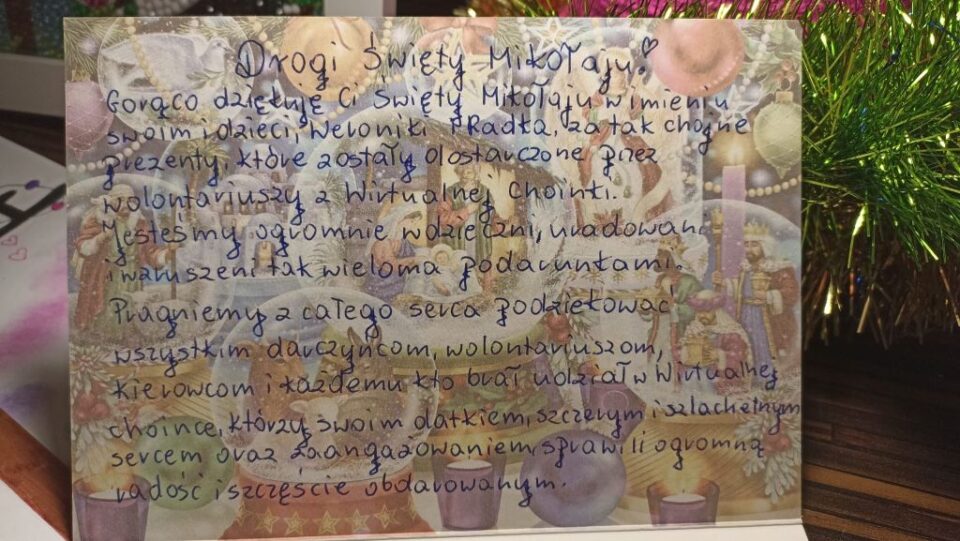 Drogi Święty Mikołaju!
Gorąco dziękuję Ci Święty Mikołaju w imieniu
swoim i dzieci, Weroniki i Radka, za tak chojne
prezenty, które zostały dostarczone przez
wolontariuszy z Wirtualnej Choinki.
Jesteśmy ogromnie wdzięczni, uradowani
i wzruszeni tak wieloma podarunkami.
Pragniemy z całego serca podziękować
wszystkim darczyńcom, wolontariuszom,
kierowcom i każdemu kto brał udział w Wirtualnej
choince, którzy swoim datkiem, szczerym i szlachetnym
sercem oraz zaangażowaniem, sprawili ogromną
radość i szczęście obdarowanym.